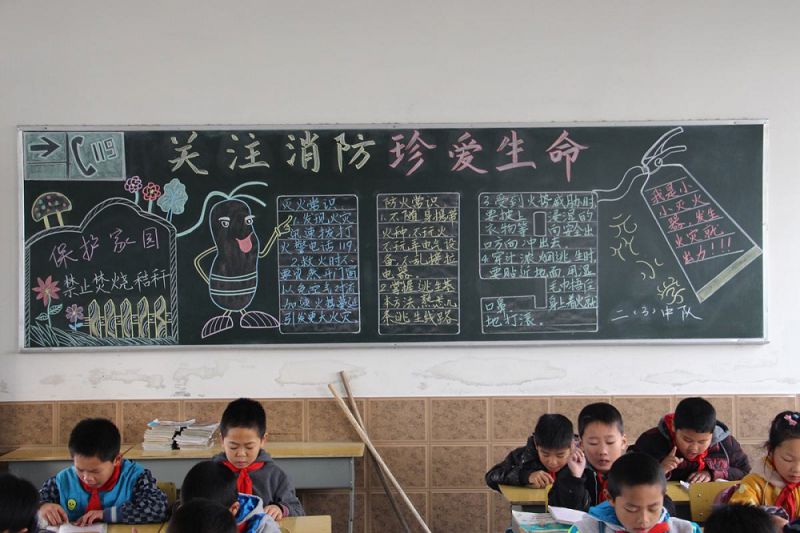 119
关注消防 珍爱生命
保护家园
禁止焚烧秸秆
灭火常识
1.发现火灾
迅速拨打
火警电话119.
2.救火时不
要贸然开门窗
以免空气对流
加速火势蔓延
引发更大火灾
防火常识
1.不随身携带
火种.不玩火
不玩弄电气设
备.不乱接拉
电器.
2.掌握逃生基
本方法.熟悉几
条逃生线路
3.受到火势威胁时
要披上
浸湿的
衣物等
向安全出
口方向冲出去.
4.穿过浓烟逃生时
要贴近地面.用湿
毛巾捂住
口鼻
身上着火就
地打滚.
我是小
小灭火
器,发生
火灾就
出力!!!
二.(3)中队